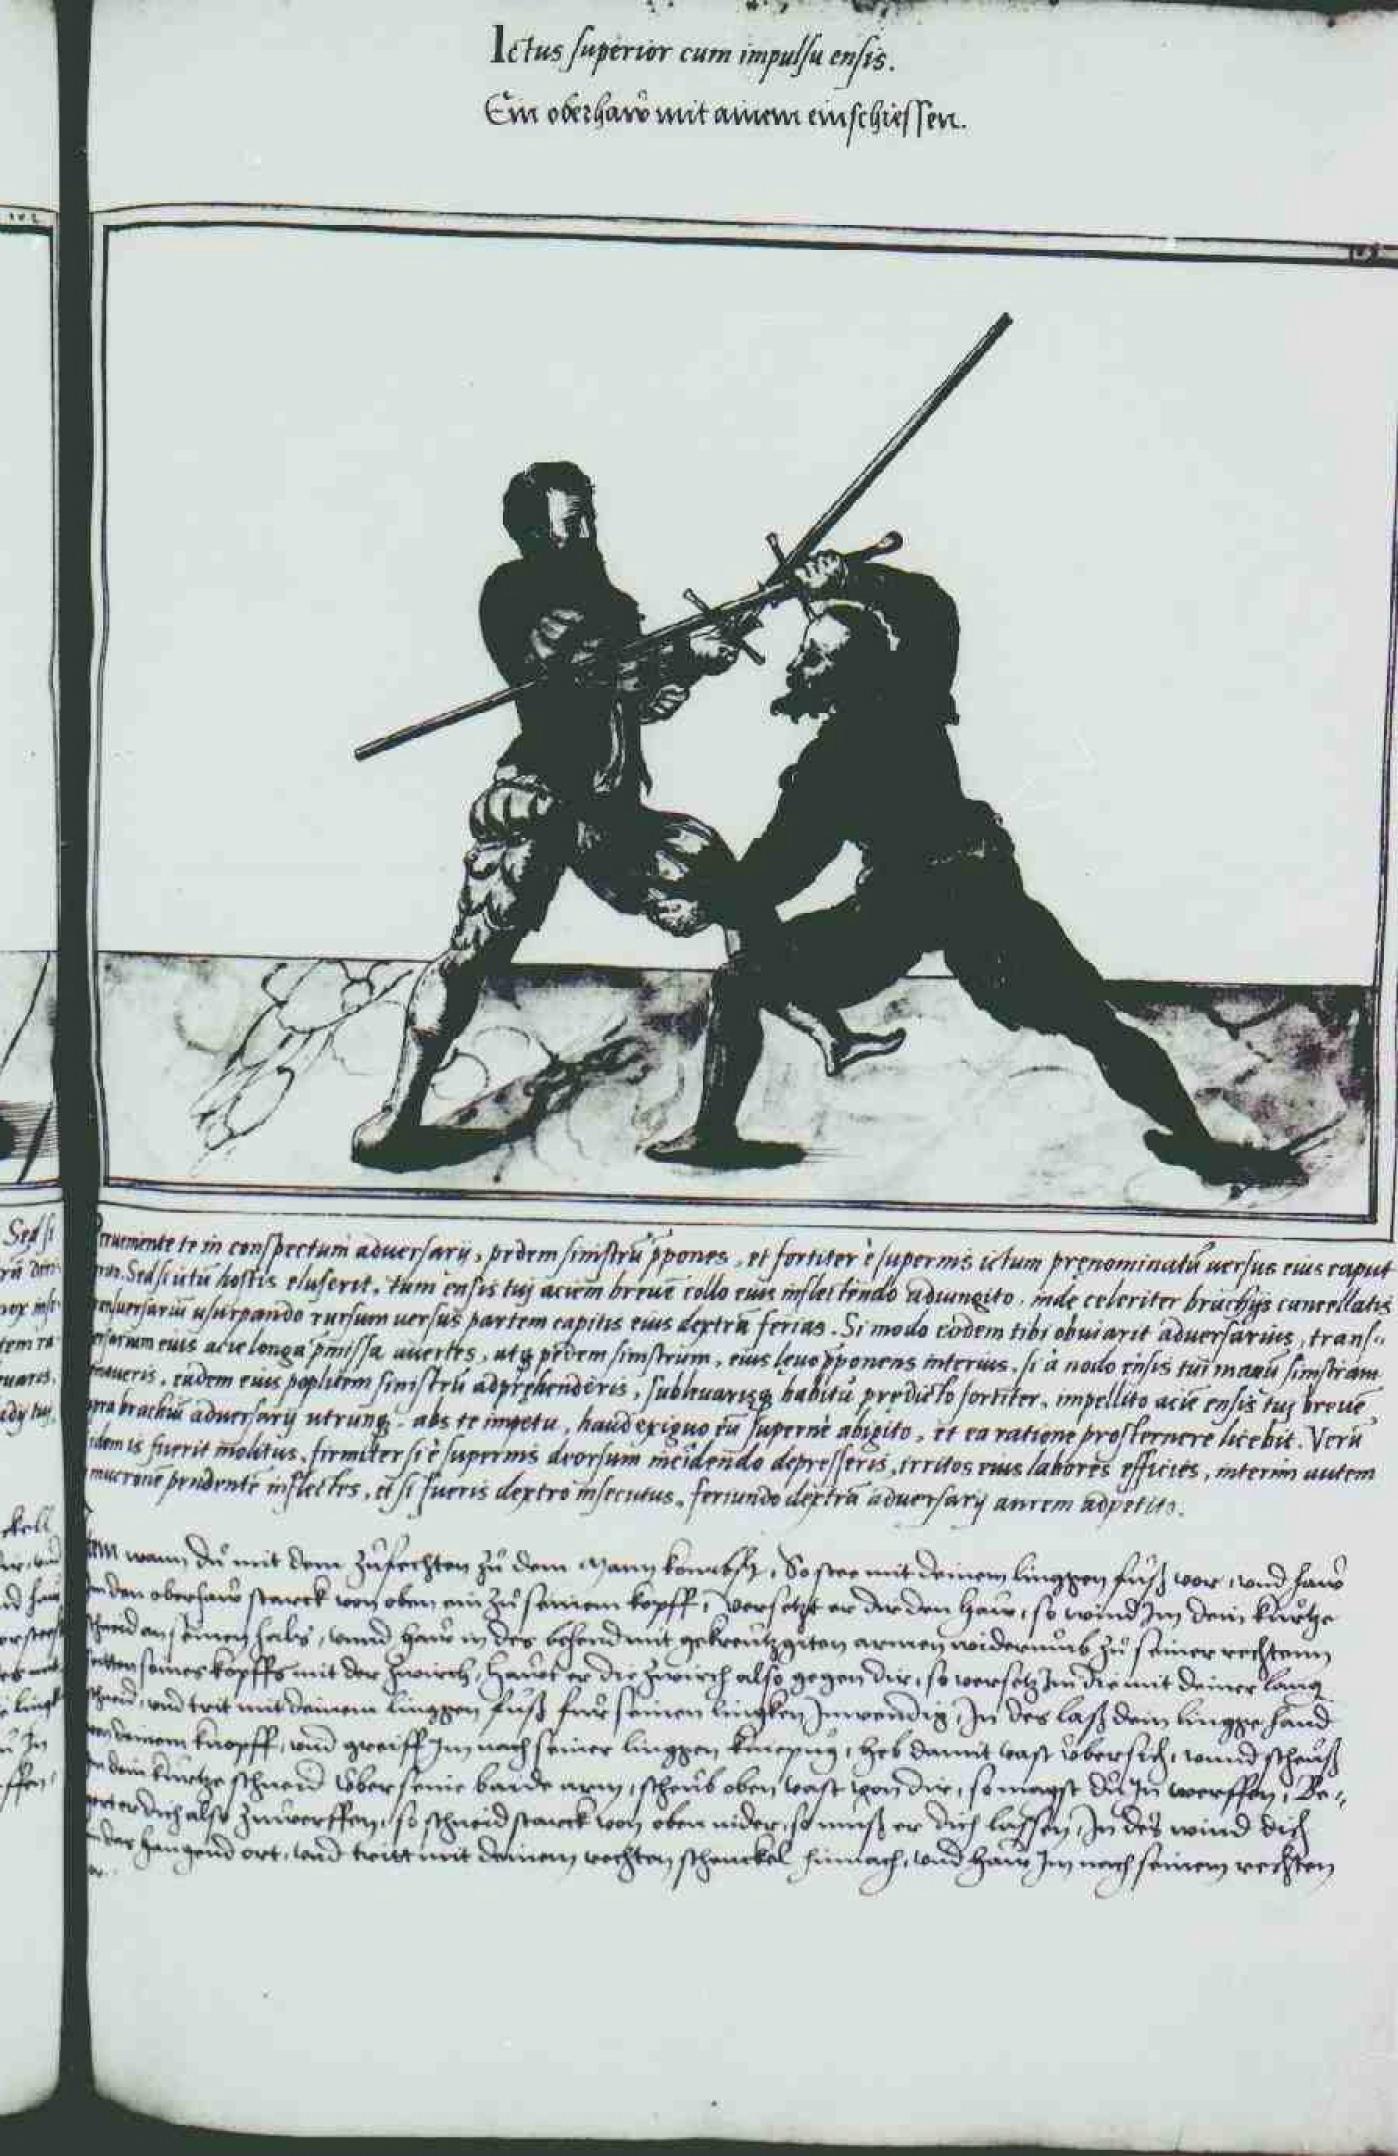 Ictus superior cum impulsu ensis.
Ein oberhaw mit ainem einschiessen.
102
Sed si
te in conspectum adversarij, pedem sinistrū p̄pones, et fortiter è supernis ictum prenominatū versus eius caput
Sed si ictū hostis eluserit, tum ensis tuj aciem brevē collo eius inflectendo adiungito, inde celeriter brachijs cancellatis
usurpando rursum versus partem capitis eius dextrā ferias. Si modo eodem tibi obviarit adversarius, trans-
eius acie longa p̄missa avertes, atq pedem sinistrum, eius levo p̄ponens interius, si à nodo ensis tui manū sinistram
eadem eius poplitem sinistrū adprehenderis, subleuarisq habitū predicto fortiter, impellito aciē ensis tuj brevē
brachiū adversarij utrunq, abs te impetu, haud exiguo eū superne abigito, et ea ratione prosternere licebit. Verū
is fuerit molitus, firmiter si è supernis deorsum incidendo depresseris, irritos eius labores efficies, interim autem
mucronē pendentē inflectes, et si fueris dextro insecutus, feriundo dextrā adversarij aurem adpetito.
wann du mit dem zufechten zu dem Mann kombst, So stee mit deinem linggen fuß vor, vnd haw
den oberhaw starck von oben ein zu seinem kopff, versetzt er dir den haw, so wind Im dein kurtze
an seinen hals, vnnd haw in des behend mit gekreutzgiten armen widerumb zu seiner rechtenn
seitten seines kopffs mit der zwirch, hawt er die zwirch also gegen dir, so versetz Im die mit deiner lang
vnd trit mit deinem linggen fuß für seinen linggken Inwendig, In des laß dein lingge hand
deinem knopff, vnd greiff Im nach seiner linggen kniepug, heb damit vast übersich, vnnd scheuß
dein kurtze schneid über seine baide arm, scheub oben vast von dir, so magst du In werffen, Be-
er dich also zuwerffen, so schneid starck von oben nider, so muß er dich lassen, In des wind dich
das hangend ort, vnd tritt mit deinem rechten schenckel hinnach, vnd haw Im nach seinem rechten
or.